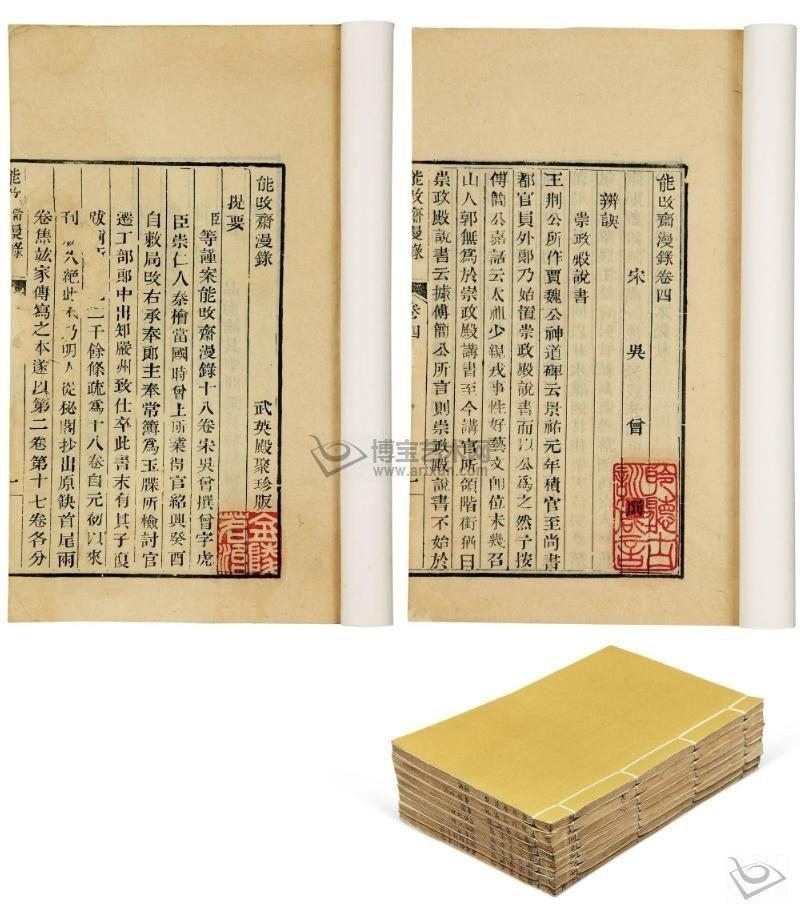 能改齋漫錄　武英殿聚珍版
提要
臣等謹案能改齋漫錄十八卷宋吳曾撰曾字虎
臣崇仁人秦檜當國時曾上所業得官紹興癸酉
自敕局改右承奉郎主奉常簿爲玉牒所檢討官
遷工部郎中出知嚴州致仕卒此書末有其子復
跋二千餘條疏爲十八卷自元初以來
刊久絕此本乃明人從秘閣抄出原缺首尾兩
卷焦竑家傳寫之本遂以第二卷第十七卷各分
能改齋漫錄
一
能改齋漫錄卷四
宋　吳　曾　撰
辨誤
崇政殿說書
王荊公所作賈魏公神道碑云景祐元年積官至尚書
都官員外郎乃始置崇政殿說書而以公爲之然予按
傅簡公嘉話云太祖少親戎事性好藝文即位未幾召
山人郭無爲於崇政殿講書至今講官所領階銜猶曰
崇政殿說書云據傅簡公所言則崇政殿說書不始於
能改齋漫錄
卷四
一
博宝艺术网
www.artxun.com